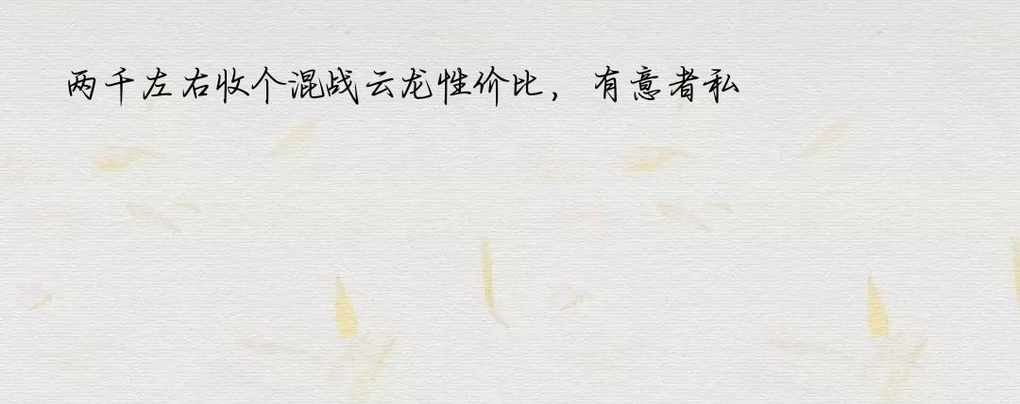 两千左右收个混战云龙性价比，有意者私